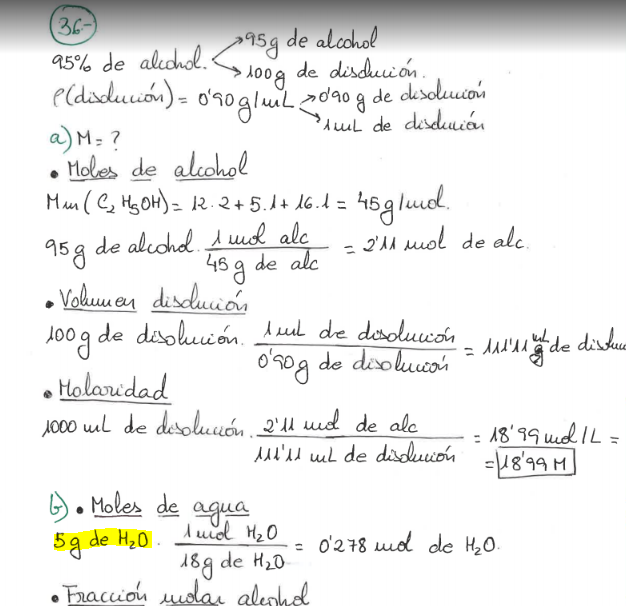 36.-
95% de alcohol. 95g de alcohol
100g de disolución.
ρ(disolución) = 0'90 g/mL → 0'90 g de disolución
1 mL de disolución
a) M = ?
• Moles de alcohol
Mm (C₂H₅OH) = 12·2 + 5·1 + 16·1 = 45 g/mol.
95 g de alcohol · 1 mol alc / 45 g de alc = 2'11 mol de alc.
• Volumen disolución
100 g de disolución. 1 mL de disolución / 0'90 g de disolución = 111'11 mL de
• Molaridad
1000 mL de disolución. 2'11 mol de alc / 111'11 mL de disolución = 18'99 mol/L =
= 18'99 M
b) • Moles de agua
5 g de H₂O · 1 mol H₂O / 18 g de H₂O = 0'278 mol de H₂O.
• Fracción molar alcohol